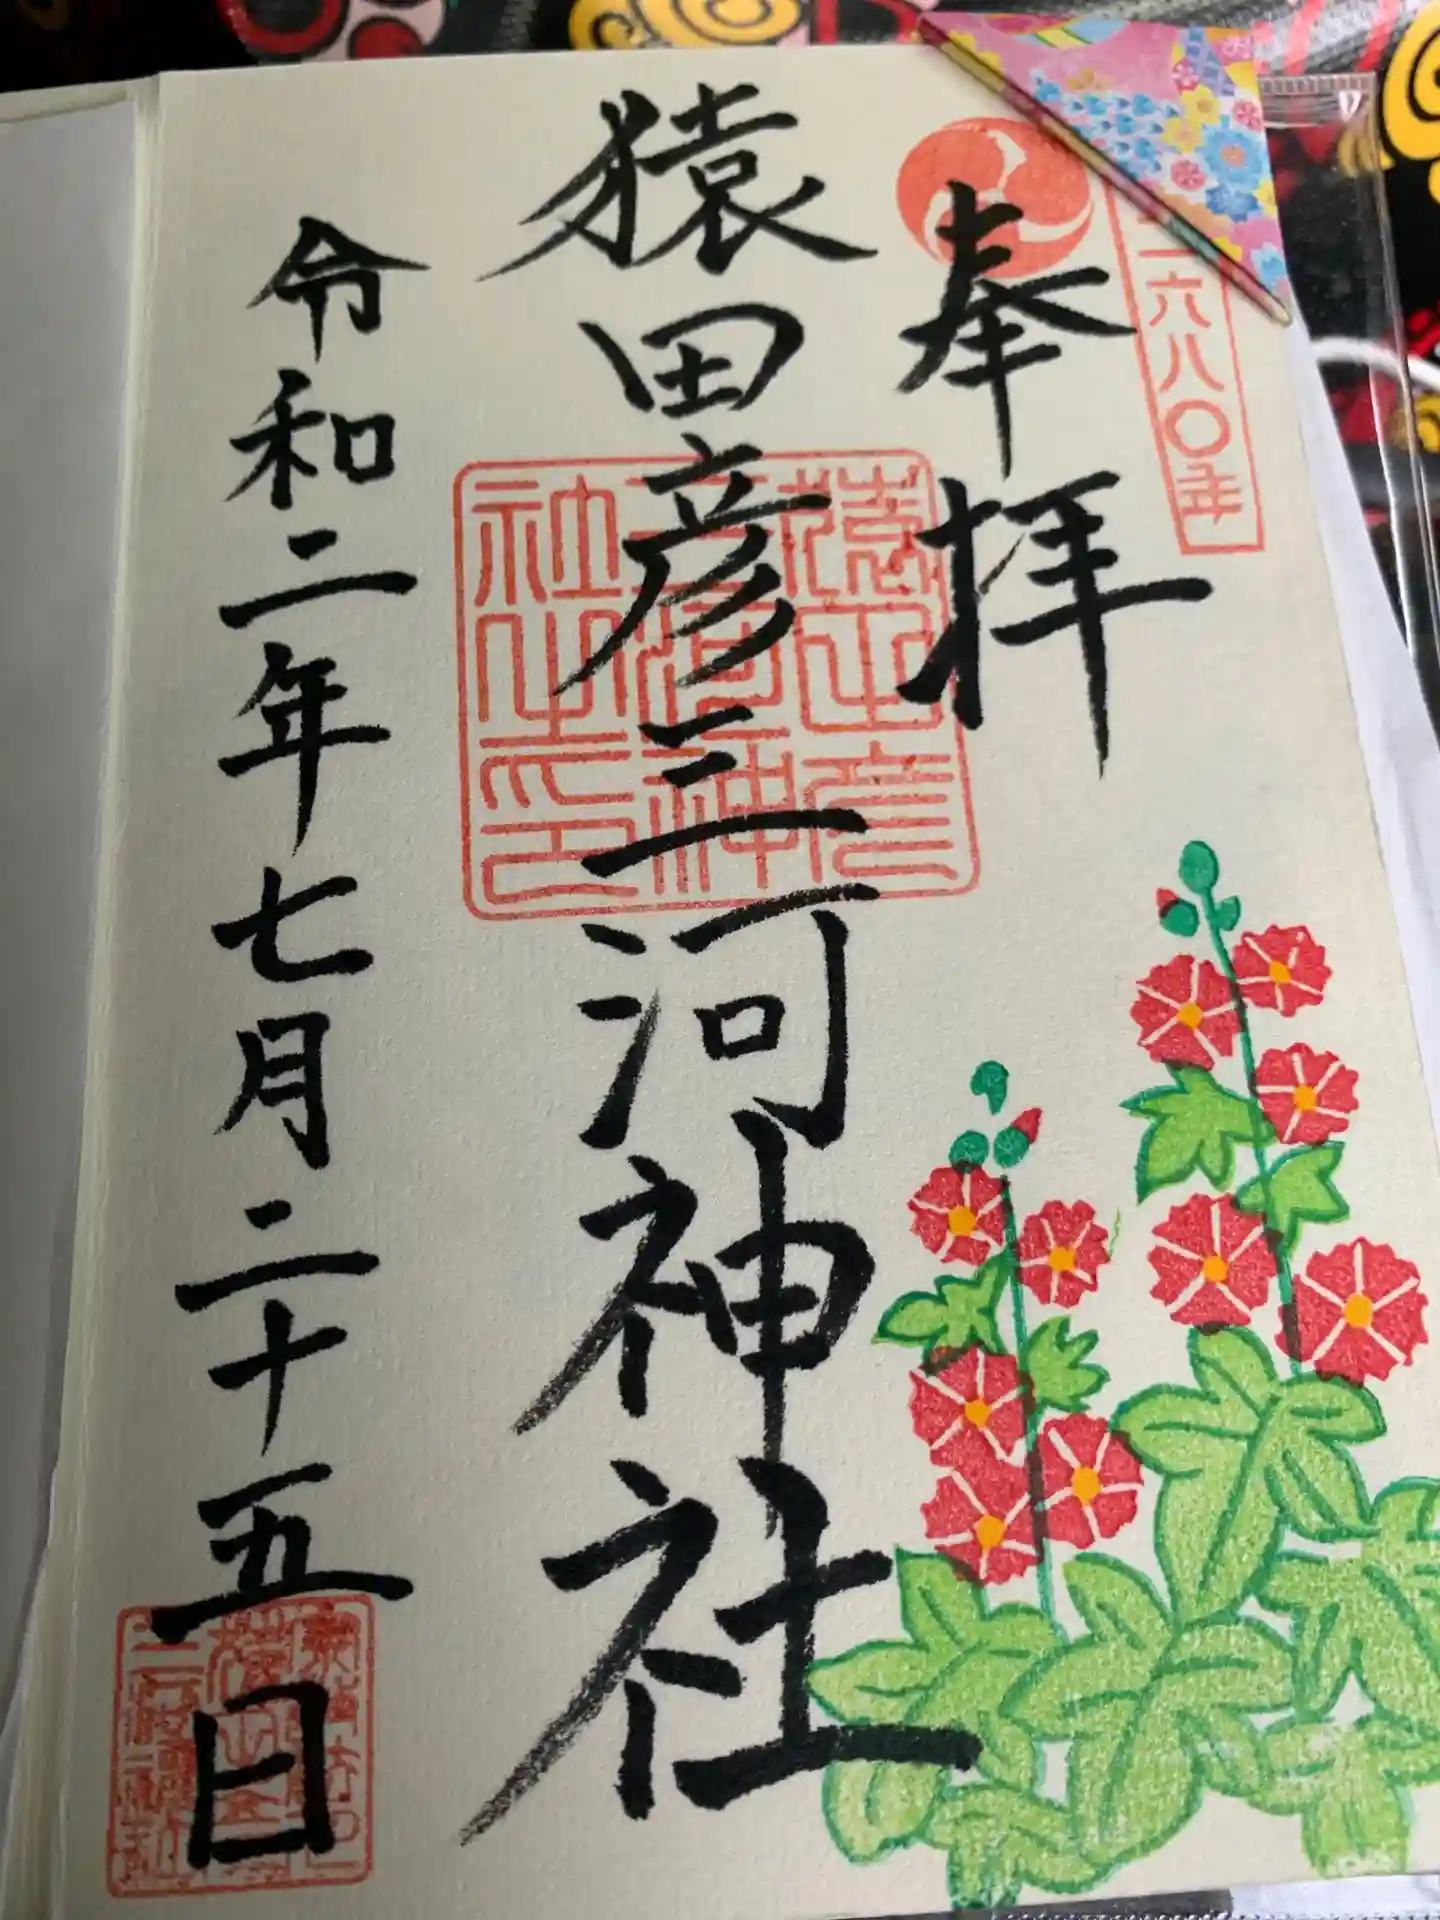 二六八〇年
奉拝
猿田彦三河神社
猿田彦三河神社之印
令和二年七月二十五日